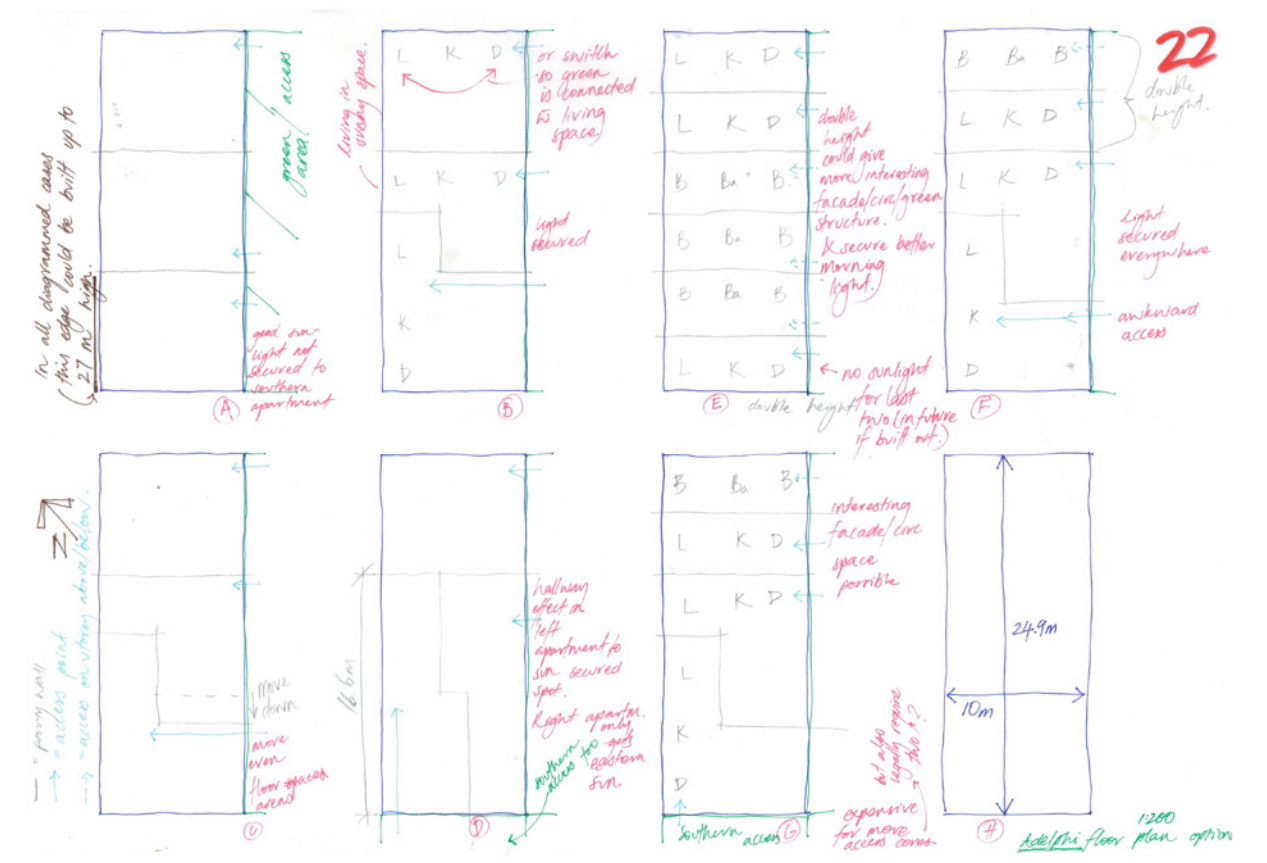 22
In all diagrammed cases
this edge could be built up to
27 m high.
green / access
area
good sun-
light not
secured to
southern
apartment
A
living in
every space.
L K D
or switch
so green
is connected
to living
space)
L K D
light
secured
L
K
D
B
L K D
L K D
B Ba B
B Ba B
B Ba B
L K D
double
height
could give
more interesting
facade/circ/green
structure.
& secure better
morning
light.)
← no sunlight
for last
two (in future
if built out.)
E
double height
B Ba B
L K D
double
height.
L K D
L
K
D
light
secured
everywhere
awkward
access
F
N
— = party wall
→ = access point
--→ = access on storey above/below.
move
down
more
even
floor spaces
area)
C
16.6m
hallway
effect in
left
apartment to
sun secured
spot.
Right apartm.
only
gets
eastern
sun.
southern
access too
D
B Ba B
L K D
L K D
L
K
D
interesting
facade/circ
space
possible
southern access
G
but also
legally require
two?
expensive
for more
access cores
24.9m
10m
H
1:200
Adelphi floor plan options